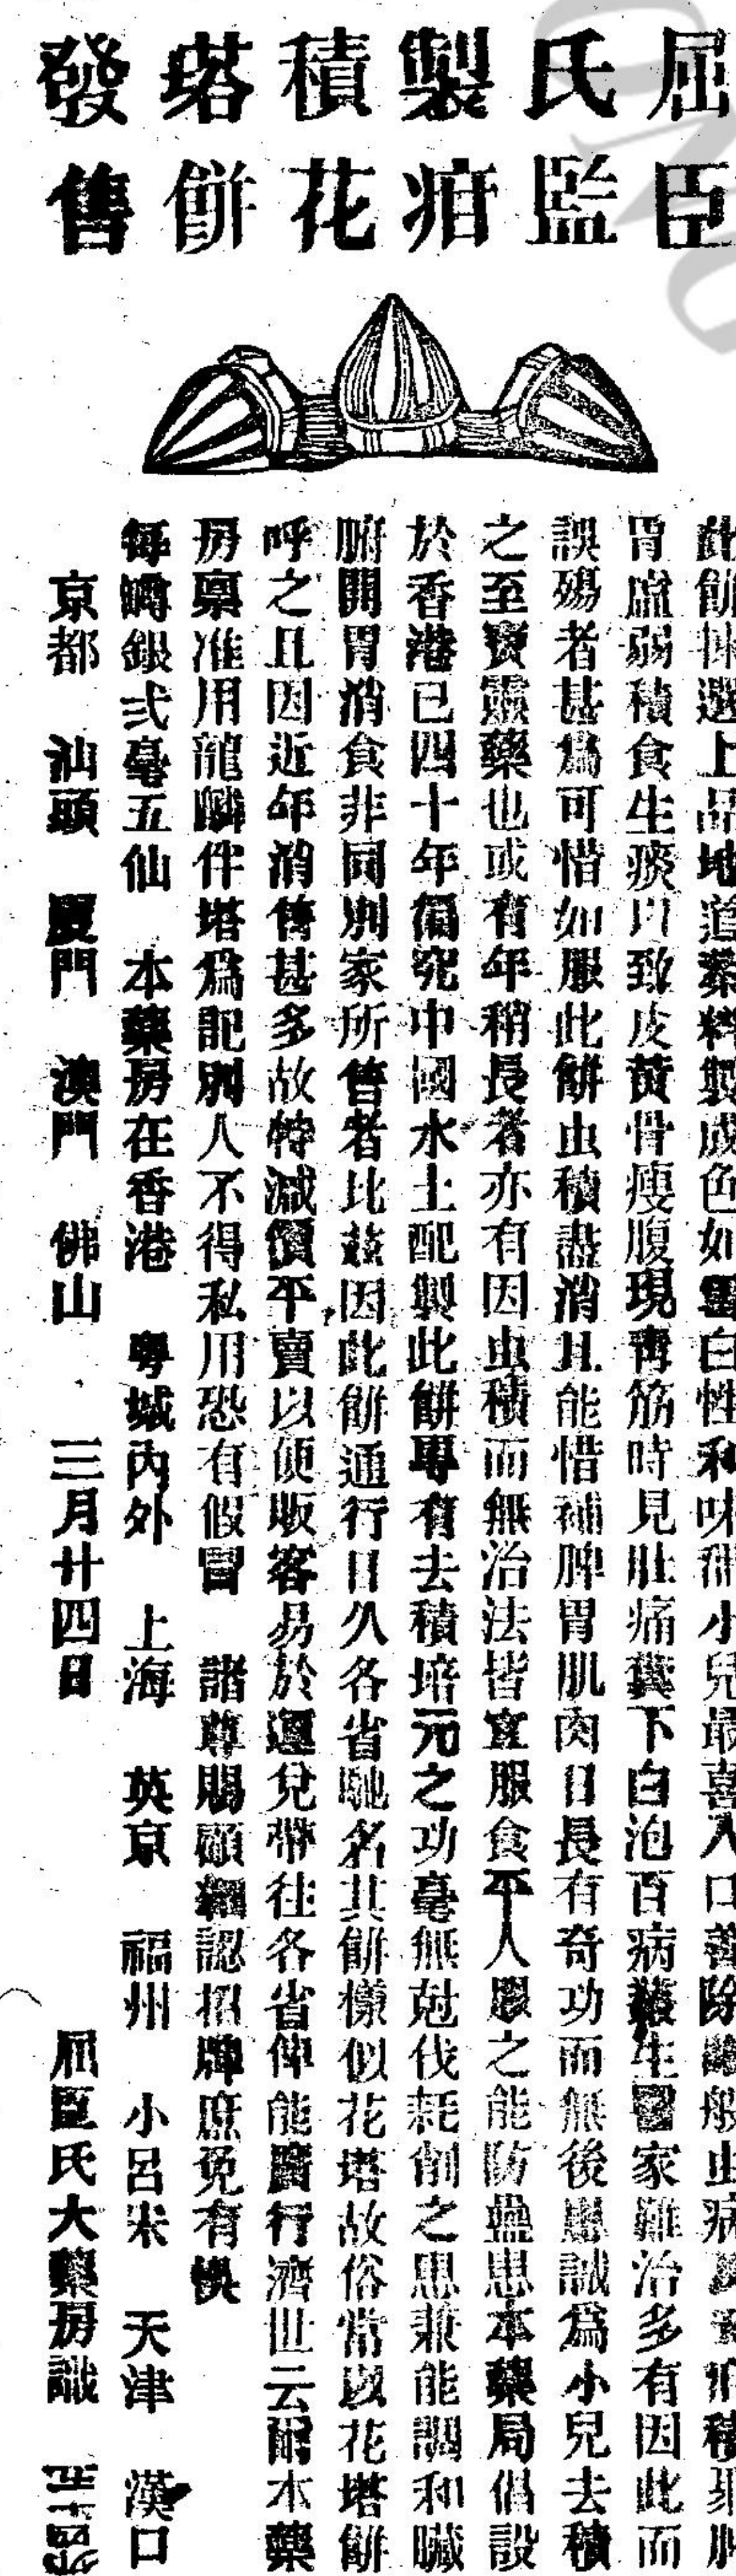 屈臣
氏監
製疳
積花
塔餅
發售
此餅揀選上品地道藥料製成色如雪白性和味甜小兒最喜入口善除諸般虫病疳積
胃虛弱積食生痰以致皮黃骨瘦腹現靑筋時見肚痛糞下白泡百病叢生醫家難治多有因此而
誤殤者甚爲可惜如服此餅虫積盡消且能惜補脾胃肌肉日長有奇功而無後患誠爲小兒去積
之至寶靈藥也或有年稍長者亦有因虫積而無治法皆宜服食平人服之能防蠱患本藥局倡設
於香港已四十年徧究中國水土配製此餅專有去積培元之功毫無尅伐耗削之患兼能調和臟
腑開胃消食非同別家所售者比茲因此餅通行日久各省馳名其餅樣似花塔故俗常以花塔餅
呼之且因近年消售甚多故特減價平賣以便販客易於運兌帶往各省俾能廣行濟世云爾本藥
房稟准用龍麟伴塔爲記別人不得私用恐有假冒 諸尊賜顧細認招牌庶免有悞
每罇銀弍毫五仙 本藥房在香港 粤城內外 上海 英京 福州 小呂宋 天津 漢口
京都 汕頭 廈門 澳門 佛山 三月廿四日 屈臣氏大藥房識